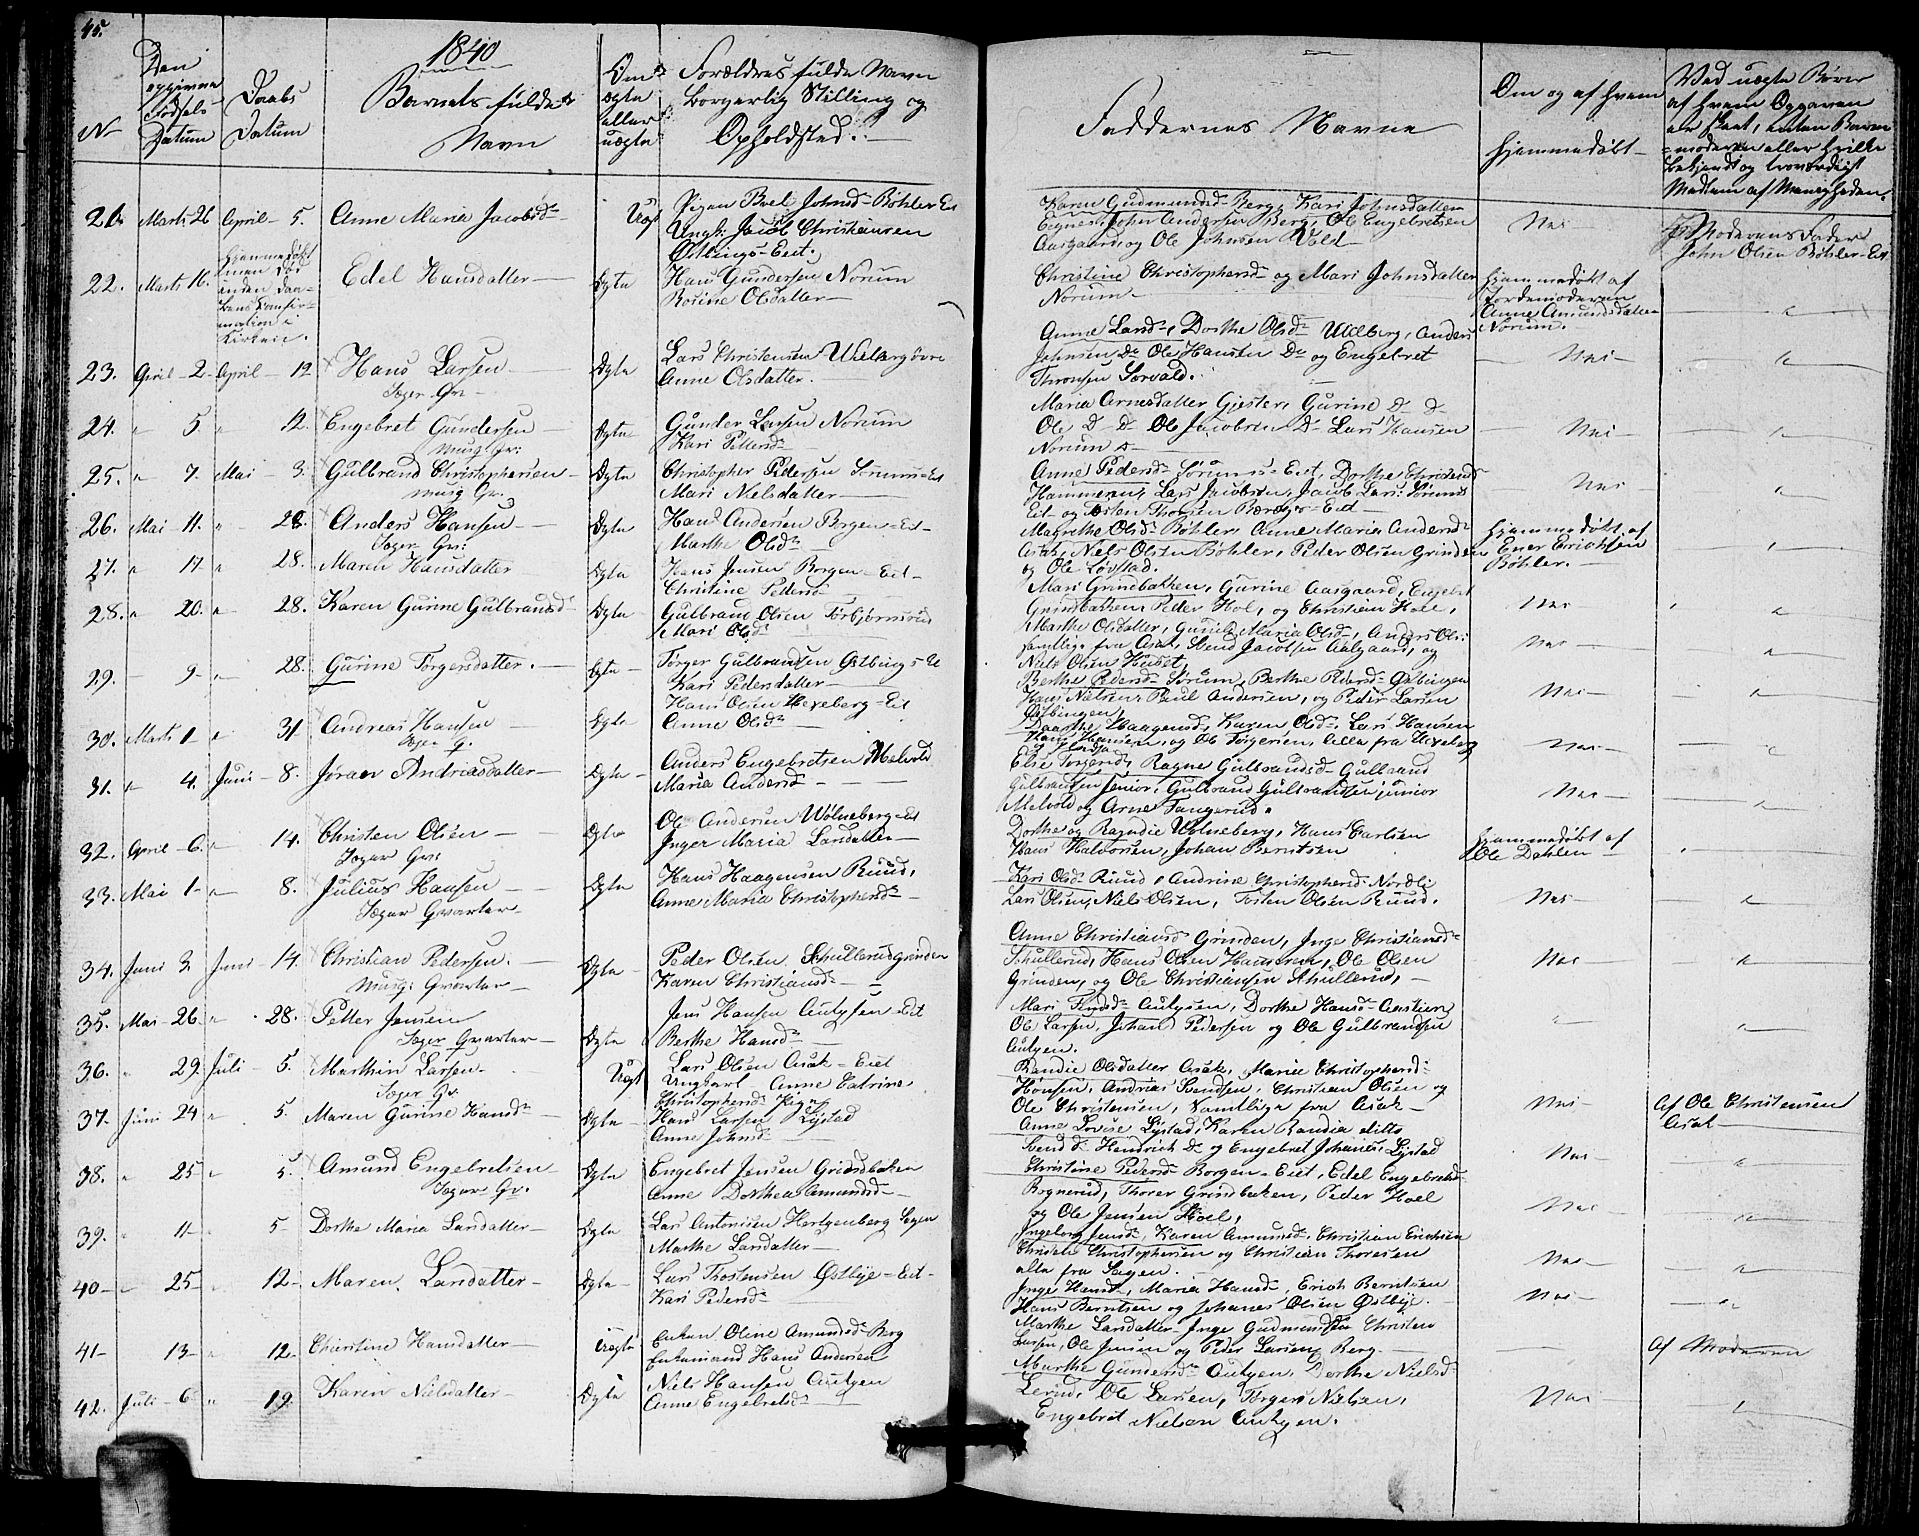 45.
1840
No
Den
opgivne
Fødsels
Datum
Daabs
Datum
Barnets fulde
Navn
Om
ægte
eller
uægte
Forældres fulde Navn
Borgerlig Stilling og
Opholdsted.
Faddernes Navne
Om og af hvem
hjemmedøbt
Ved uægte Børn
af hvem Opgaven
er skeet, enten Barne
=moderen eller hvilke
bekjendt og troværdigt
Medlem af Menigheden.
21. Marts 26 April 5. Anne Maria Jacobsd. Uægt Pigen Boel Johnsd. Böhler Eit
Ungk: Jacob Christiansen
Østbings-Eit.
Karen Gudmundsd. Berg, Kari Johnsdatter
John Andersen Berg, Ole Engebretsen
Aasgaard, og Ole Johnsen Vold
Nei
Moderens Fader
John Olsen Bøhler-Eit
22. Marts 16. hjemmedøbt
men død
inden Daa-
bens Confir-
mation i
Kirken.
Edel Hansdatter Ægte Hans Gundersen Norum
Bosine Olsdatter
Christine Christophersd. og Mari Johnsdatter
Norum
hjemmedøbt af
Jordemoderen
Anne Amundsdatter
Norum.
23. April 2. April 12 Hans Larsen
Jæger Qv.
Ægte Lars Christensen Ullelberg øvre
Anne Olsdatter.
Anne Larsd., Dorthe Olsd. Ullelberg, Anders
Johnsen Do Ole Hansen Do og Engebret
Thronsen Sørvald.
Nei
24. " 5. " 12. Engebret Gundersen
Musq Qv:
Ægte Gunder Larsen Norum
Kari Pettersd.
Maria Arnesdatter Gjester, Gurine D D
Ole D D Ole Jacobsen D Lars Hansen
Norum
Nei
25. " 7. Mai 3. Gulbrand Christophersen
Musq Qv.
Ægte Christopher Pedersen Sørum-Eit
Mari Nielsdatter
Anne Pedersd. Sørums-Eit, Dorthe Christensd.
Hammeren, Lars Jacobsen, Jacob Lars: Sørums
Eit og Osten Thorsen Bæreggs-Eit
Nei
26. Mai 11. " 28. Anders Hansen
Jæger Qv:
Ægte Hans Andersen Borgen-Eit
Marthe Olsd.
Magrethe Olsd. Bøhler, Anne Maria Andersd.
Asak, Niels Olsen Bøhler, Peder Olsen Grinden
og Ole Løvstad.
hjemmedøbt af
Ener Erichsen
Bøhler.
27. " 17 " 28. Maren Hansdatter Ægte Hans Jensen Borgen-Eit
Christine Pedersd.
Mari Grindbakken, Gurine Aasgaard, Engebret
Grindbakken, Peder Hol, og Christian Hoel,
Nei
28. " 20. " 28. Karen Gurine Gulbrandsd. Ægte Gulbrand Olsen Torbjørnsrud
Mari Olsd.
Marthe Olsdatter, Maria Olsd., Anders Ols:
samtlige fra Asak, Svend Jacobsen Aalgaard, og
Niels Olsen Huset,
Nei
29. 9 " 28. Gurine Torgersdatter. Ægte Torger Gulbrandsen Østbings-Eit
Kari Pedersdatter
Berthe Pedersd. Sørum, Berthe Pedersd. Østbingen
Hans Nielsen, Paul Andersen, og Peder Larsen
Østbingen,
Nei
30. Marts 1 " 31 Andreas Hansen
Jæger Q.
Ægte Hans Olsen Hexeberg-Eit
Anne Olsd.
Dorthe Haagensd. Karen Olsd. Lars Hansen
Hans Hansen, og Ole Torgersen, alle fra Hexeberg
Nei
31. " 4. Juni 8. Jøran Andreasdatter Ægte Anders Engebretsen Melvold
Maria Andersd.
Else Torgersd, Ragne Gulbrandsd. Gulbrand
Gulbrandsen senior, Gulbrand Gulbrandsen junior
Melvold og Arne Tangerud.
Nei
32. April 6. " 14. Christen Olsen
Jæger Qv:
Ægte Ole Andersen Wølneberg-Eit
Inger Maria Larsdatter
Dorthe og Ragndie Wolneberg, Hans Carlsen
Hans Halvorsen, Johan Berntsen
hjemmedøbt af
Ole Dahlen
33. Mai 1 " 8. Julius Hansen
Jæger Qvarter
Ægte Hans Haagensen Ruud,
Anne Maria Christophersd.
Kari Olsd. Ruud, Andrine Christophersd. Nordli
Lars Olsen, Niels Olsen, Tosten Olsen Ruud.
Nei
34. Juni 3. Juni 14. Christian Pedersen.
Musq: Qvarter
Ægte Peder Olsen Skullerudgrinden
Karen Christiansd.
Anne Christiansd. Grinden, Inge Christiansd.
Skullerud, Hans Olsen Hammeren, Ole Olsen
Grinden, og Ole Christiansen Skullerud,
Nei
35. Mai 26. " 28. Petter Jensen
Jæger Qvarter
Ægte Jens Hansen Autysen-Eit
Berthe Hansd.
Mari Findsd. Autysen, Dorthe Hansd.
Ole Larsen, Johan Pedersen og Ole Gulbrandsen
Autyen.
36. " 29. Juli 5. Marthin Larsen
Jæger Qv.
Uægt Lars Olsen Asak-Eiet
Ungkarl Anne Catrine
Christophersd. Pige
Randie Olsdatter Asak, Marie Christophersd.
Hønsen, Andreas Svendsen, Christian Olsen og
Ole Christensen, Samtlige fra Asak
Nei
Af Ole Christensen
Asak
37. Juni 24 " 5. Maren Gurine Hansd. Ægte Hans Larsen Lystad
Anne Johnsd.
Anne Lovise Lystad, Karen Randia ditto
Svend D. Hendrich Do og Engebret Johanes: Lystad
Nei
38. " 25 " 5. Amund Engebretsen
Jæger Qv.
Ægte Engebret Jensen Grindbaken
Anne Dorthea Amundsd.
Christine Pedersd. Borgen-Eiet, Edel Engebretsd.
Bognerud, Thorer Grindbaken, Peder Hoel
og Ole Jensen Hoel,
Nei
39. " 4 " 5 Dorthe Maria Larsdatter Ægte Lars Antonisen Hertgenberg Sogen
Marthe Larsdatter
Ingeborg Jensd., Karen Amundsd. Christian Erichsen
Christen Christophersen og Christian Thoresen
alle fra Sogen.
Nei
40 " 25 " 12 Maren Larsdatter Ægte Lars Thostensen Østbye-Eit
Kari Pedersd.
Inge Hansd., Maria Hansd., Erich Berntsen
Hans Berntsen og Johanes Olsen Østbye.
Nei
41 13 " 12. Christine Hansdatter Uægte Enken Oline Amundsd. Berg
Enkemand Hans Andersen
Marthe Larsdatter, Inge Gudmundsd. Christen
Larsen, Ole Jensen og Peder Larsen Berg.
Af Moderen
42. Juli 6 " 19. Karen Nielsdatter Ægte Niels Hansen Autyen
Anne Engebretsd.
Marthe Gundersd. Autyen, Dorthe Nielsd.
Lerud, Ole Larsen, Torger Nielsen,
Engebret Nielsen Autyen.
Nei